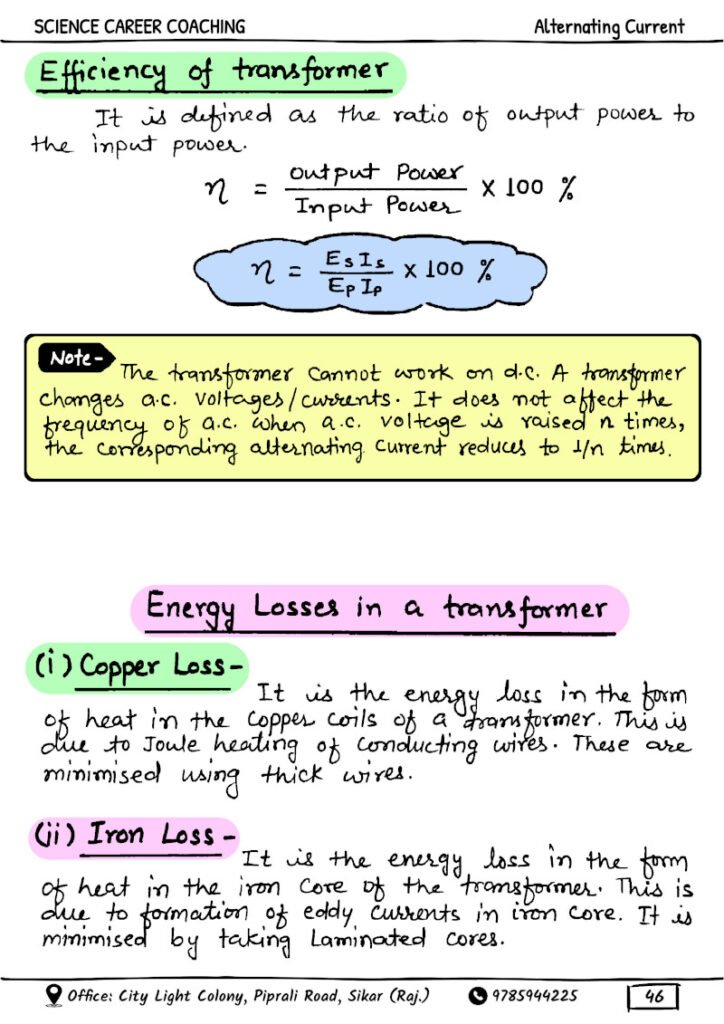 SCIENCE CAREER COACHING Alternating Current
Efficiency of transformer
It is defined as the ratio of output power to
the input power.
η = output Power / Input Power × 100 %
η = Es Is / Ep Ip × 100 %
Note- The transformer cannot work on d.c. A transformer
changes a.c. voltages/currents. It does not affect the
frequency of a.c. when a.c. voltage is raised n times,
the corresponding alternating current reduces to 1/n times.
Energy Losses in a transformer
(i) Copper Loss-
It is the energy loss in the form
of heat in the copper coils of a transformer. This is
due to Joule heating of conducting wires. These are
minimised using thick wires.
(ii) Iron Loss-
It is the energy loss in the form
of heat in the iron core of the transformer. This is
due to formation of eddy currents in iron core. It is
minimised by taking Laminated cores.
Office: City Light Colony, Piprali Road, Sikar (Raj.) 9785944225 46